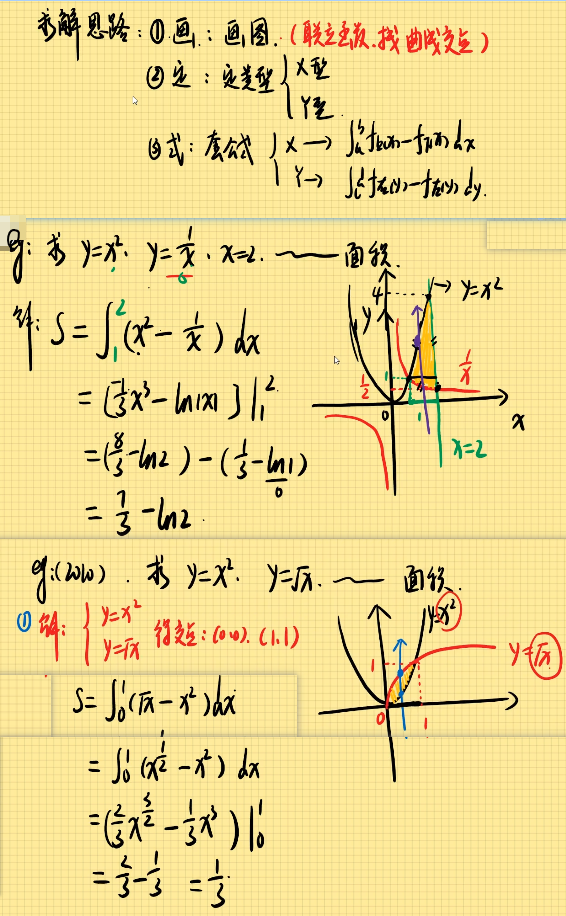 求解思路：①画：画图.（联立函数.找曲线交点）
②定：定类型 { X型
Y型
③式：套公式 { X → ∫ₐᵇ f上(x) - f下(x) dx
Y → ∫ f右(y) - f左(y) dy.
eg: 求 y=x². y=1/x. x=2. —— 面积.
解: S = ∫₁² (x² - 1/x) dx
= [1/3 x³ - ln|x|] |₁²
= (8/3 - ln2) - (1/3 - ln1)
0
= 7/3 - ln2.
4
y=x²
y
1
1/2
1/x
0
1
x
x=2
eg:(2010). 求 y=x². y=√x. —— 面积.
① 解: { y=x²
y=√x 得交点: (0.0). (1,1)
S = ∫₀¹ (√x - x²) dx
= ∫₀¹ (x^(1/2) - x²) dx
= (2/3 x^(3/2) - 1/3 x³) |₀¹
= 2/3 - 1/3 = 1/3
y=x²
y=√x
1
0
1